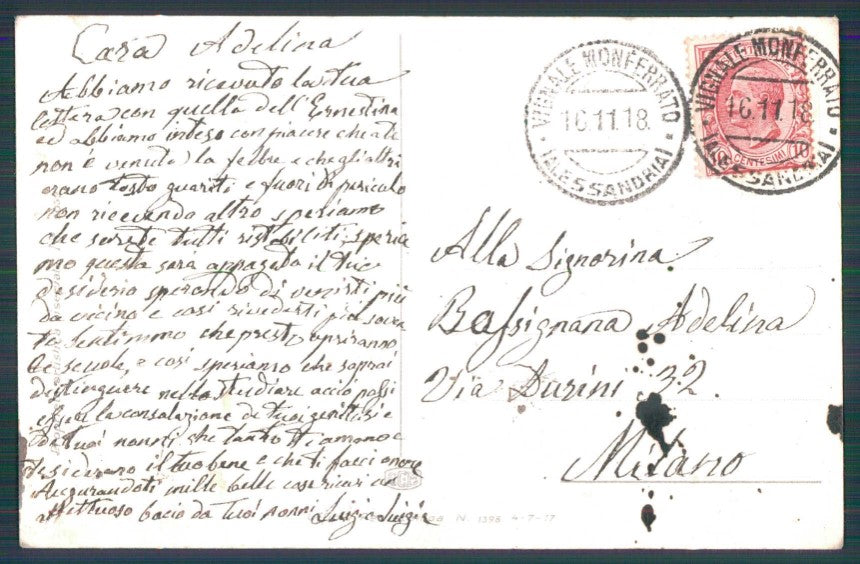 Cara Adelina
Abbiamo ricevuto la tua
lettera con quella dell'Ernestina
ed abbiamo inteso con piacere che a te
non è venuta la febbre e che gli altri
erano tosto guariti e fuori di pericolo
non ricevendo altro speriamo
che sarete tutti ristabiliti, speria
mo questa sarà appagato il tuo
desiderio sperando di venirti più
da vicino e così rivederti più soven
te sentimmo che presto apriranno
le scuole, e così speriamo che saprai
distinguere nello studiare acciò possi
essere la consolazione di tuoi genitori e
dei tuoi nonni che tanto ti amano e
desiderano il tuo bene e che ti facci onore
Augurandoti mille belle cose ricevi un
affettuoso bacio da tuoi nonni Luigi e Luigia
VIGNALE MONFERRATO
16.11.18.
(ALESSANDRIA)
VIGNALE MONFERRATO
16.11.18
(ALESSANDRIA)
CENTESIMI 10
Alla Signorina
Bassignana Adelina
Via Durini 32
Milano
N. 1396 4-7-17